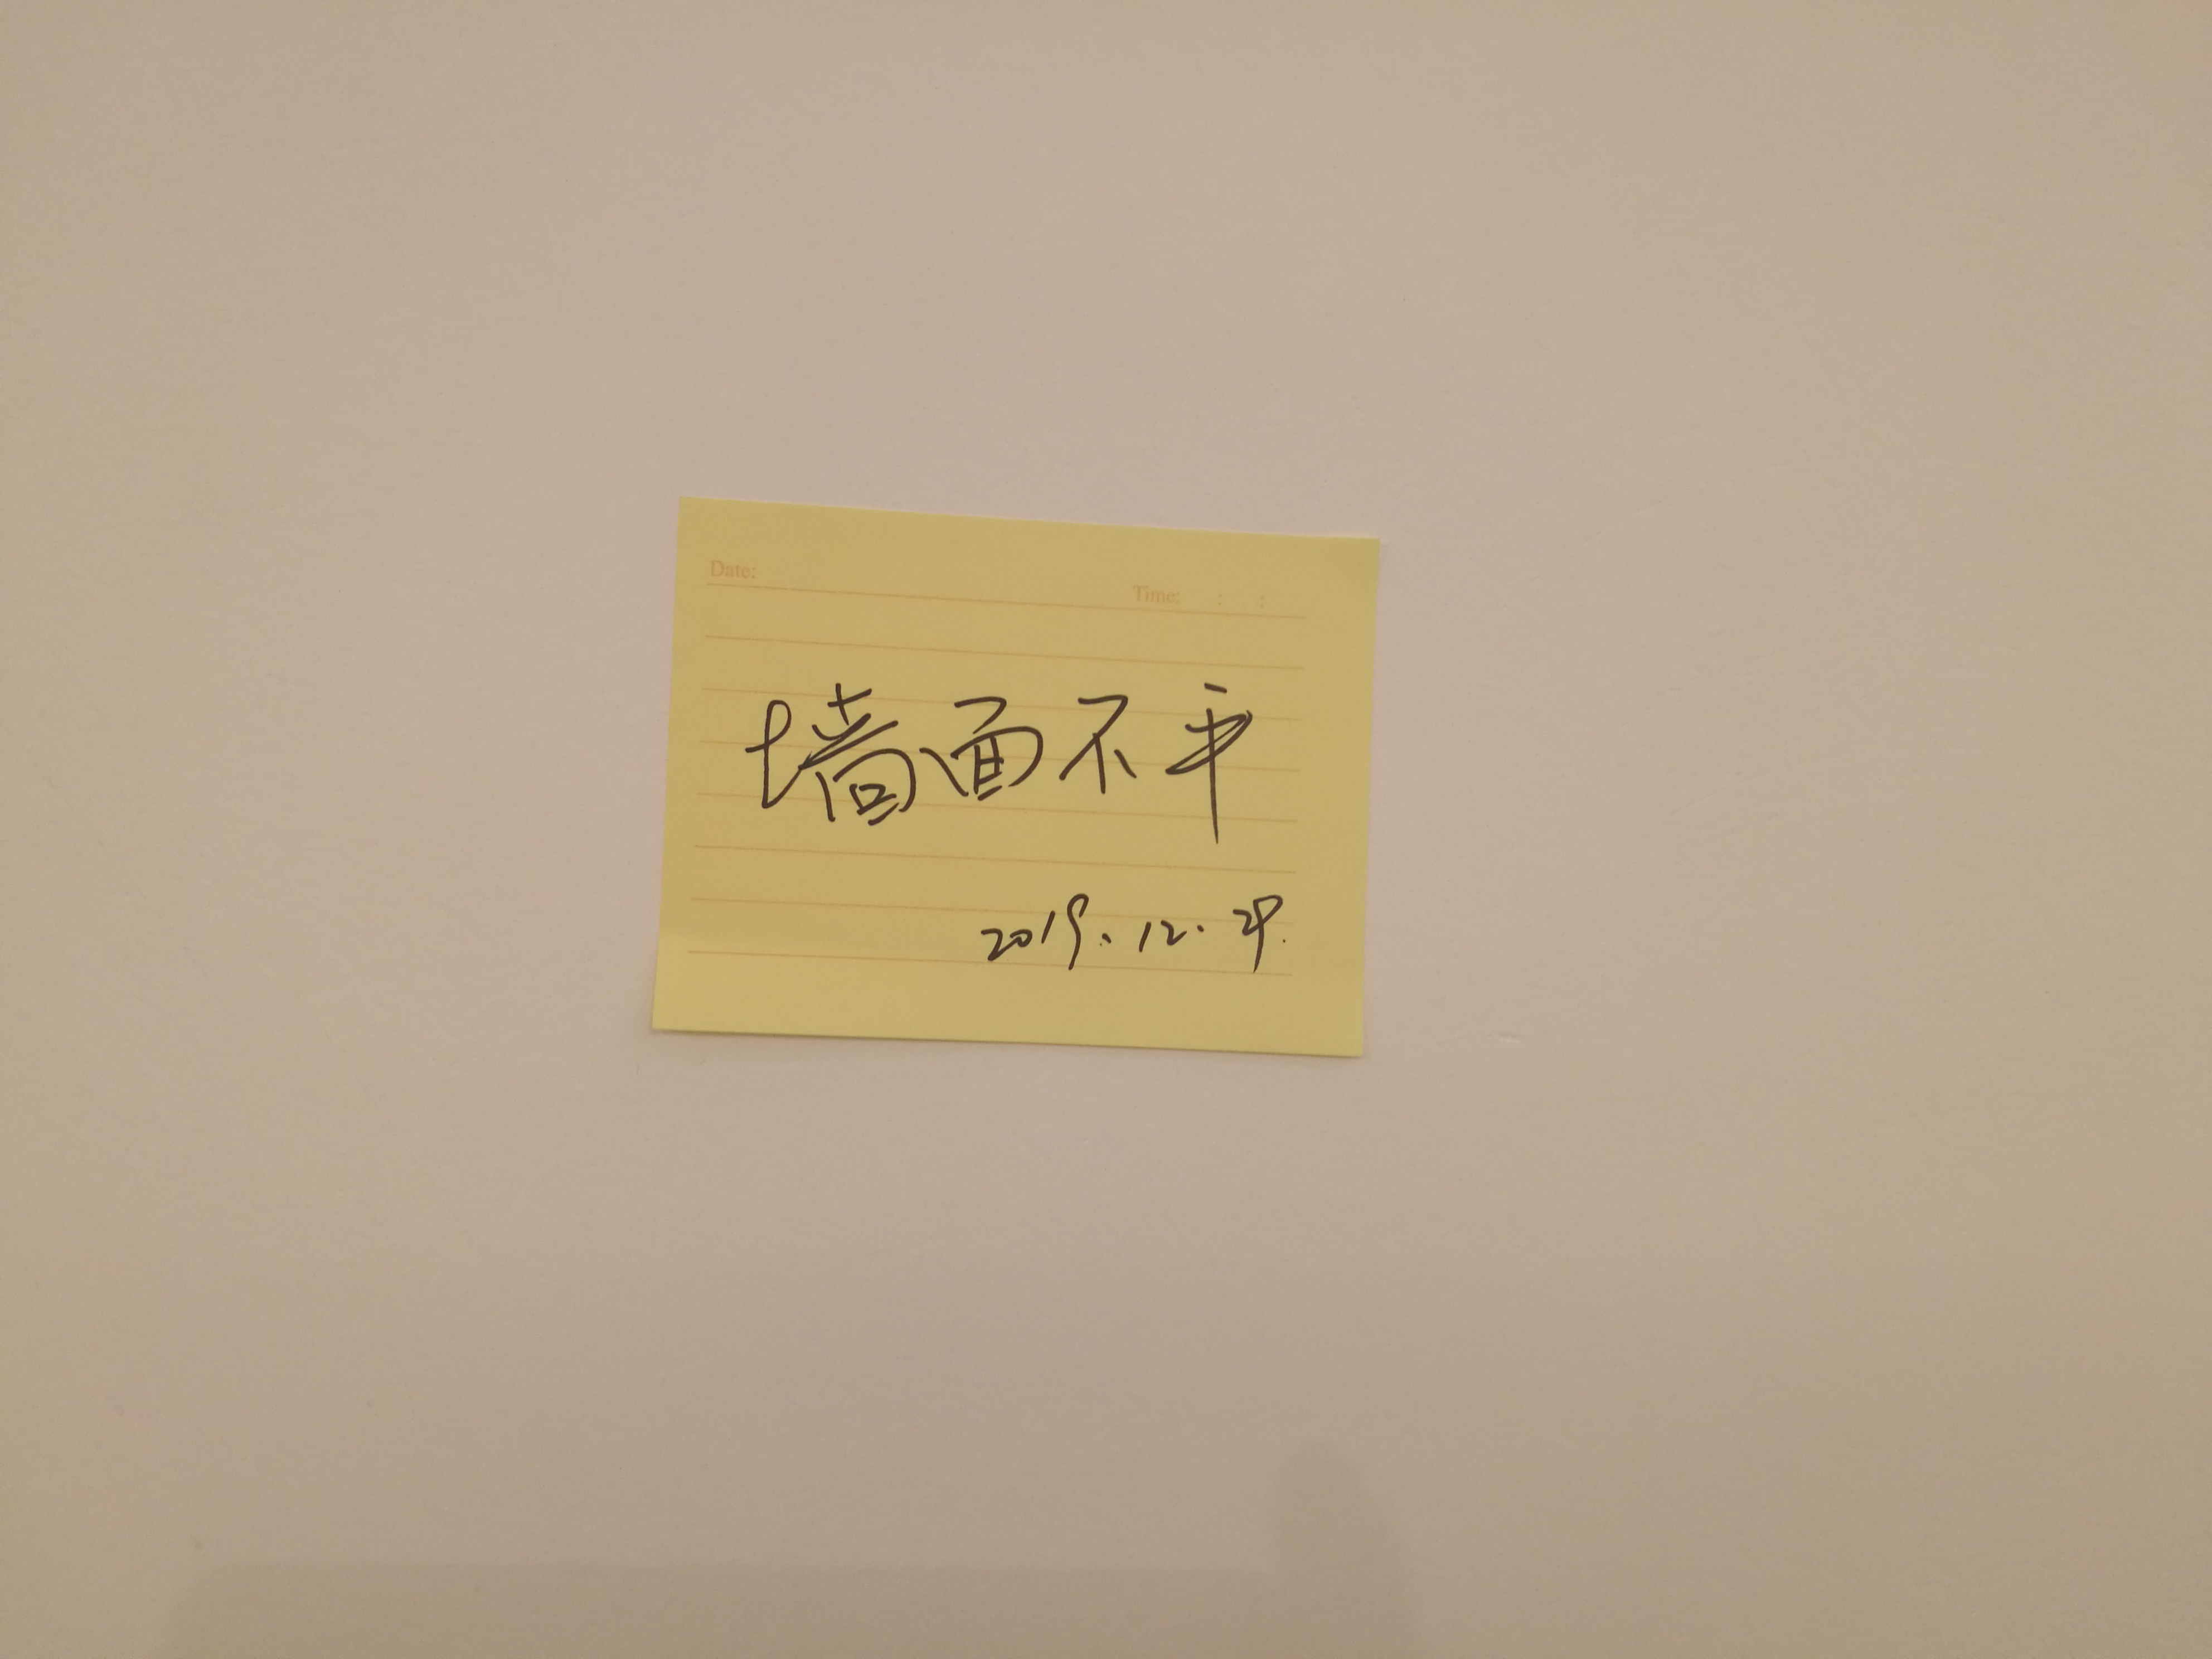 Date:
Time: : :
墙面不平
2019.12.29.